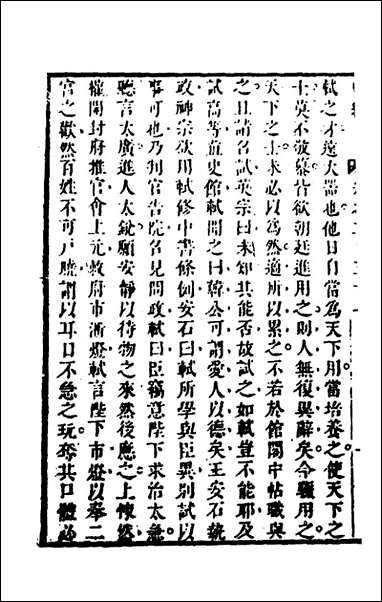 軾之才遠大器也他日自當爲天下用當培養之使天下之
士莫不畏慕皆欲朝廷進用之則人無復異辭矣今驟用之
天下之士未必以爲然適所以累之不若於館閣中帖職與
之且請召試英宗曰未知其能否故試之如軾豈不能耶及
試高等直史館軾聞之曰韓公可謂愛人以德矣王安石執
政神宗欲用軾修中書條例安石曰軾所學與臣異別試以
事可也乃判官告院召見問政軾曰臣竊意陛下求治太急
聽言太廣進人太銳願安靜以待物之來然後應之上悚然
權開封府推官會上元敕府市浙燈軾言陛下市燈以奉二
宮之歡然百姓不可戶曉謂以耳目不急之玩奪其口體必